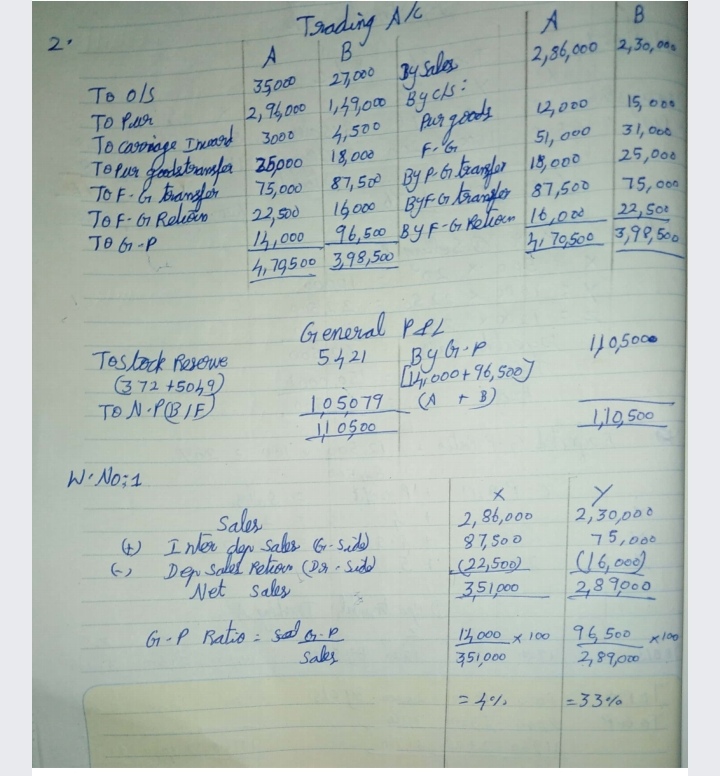 2.
Trading A/c
A B A B
To O/S 35,000 27,000 By Sales 2,86,000 2,30,000
To Pur 2,94,000 1,49,000 By C/S:
To carriage Inward 3000 4,500 Pur goods 12,000 15,000
To Pur goods transfer 25,000 18,000 F-G 51,000 31,000
To F-G transfer 75,000 87,500 By P.G transfer 18,000 25,000
To F-G Return 22,500 16,000 By F-G transfer 87,500 75,000
To G-P 14,000 96,500 By F-G Return 16,000 22,500
4,70,500 3,98,500 4,70,500 3,98,500
General P&L
To stock Reserve 5421 By G-P 1,10,5000
(372 + 5049) [14,000 + 96,500]
To N.P(B/F) 1,05079 (A + B)
1,10500 1,10,500
W.No:1
X Y
Sales 2,86,000 2,30,000
(+) Inter dep sales (G-Side) 87,500 75,000
(-) Dep sales Return (Dr-Side) (22,500) (16,000)
Net sales 3,51,000 2,89,000
G-P Ratio = G-P 14,000 × 100 96,500 × 100
Sales 3,51,000 2,89,000
= 4% = 33%